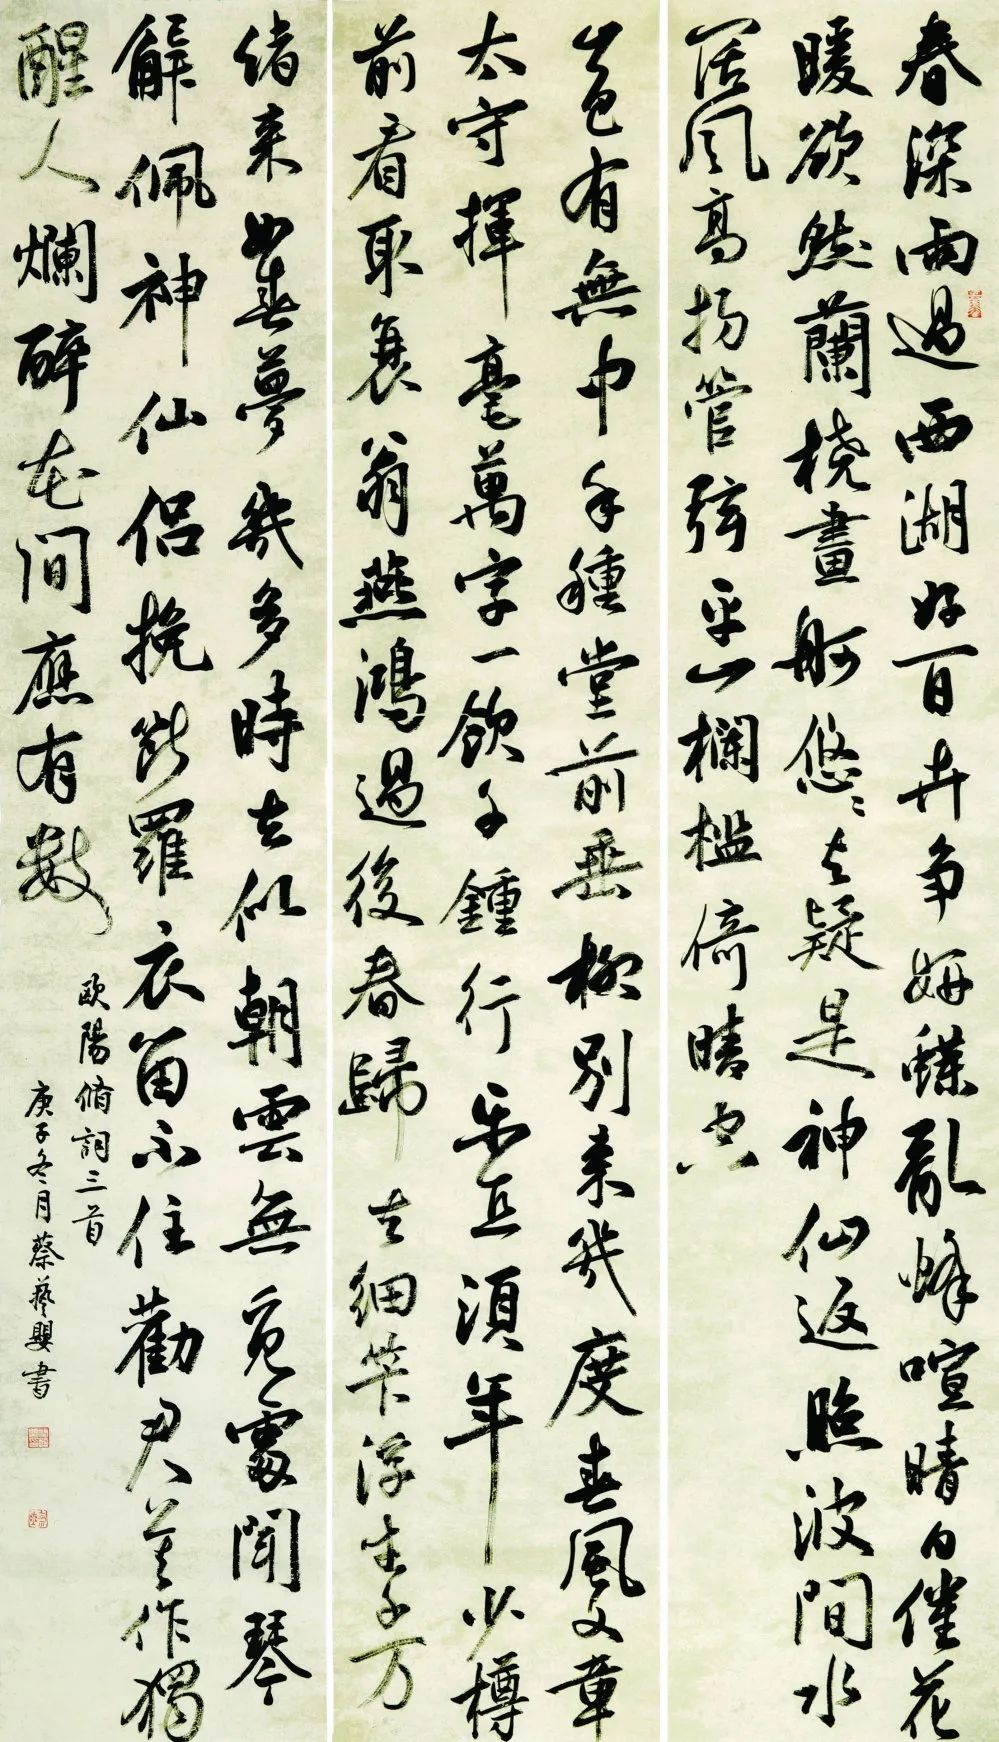 春深雨過西湖好百卉争妍蝶亂蜂喧晴日催花
暖欲然蘭橈畫舸悠〻去疑是神仙返照波間水
闊風高揚管弦平山欄檻倚晴空
山色有無中手種堂前垂柳別来幾度春風文章
太守揮毫萬字一飲千鍾行樂直須年少樽
前看取衰翁燕鴻過後春歸去細筭浮生千万
緒来如春夢幾多時去似朝雲無覓處聞琴
解佩神仙侶挽斷羅衣留不住勸君莫作獨
醒人爛醉花間應有數
歐陽脩詞三首
庚子冬月蔡藝嬰書